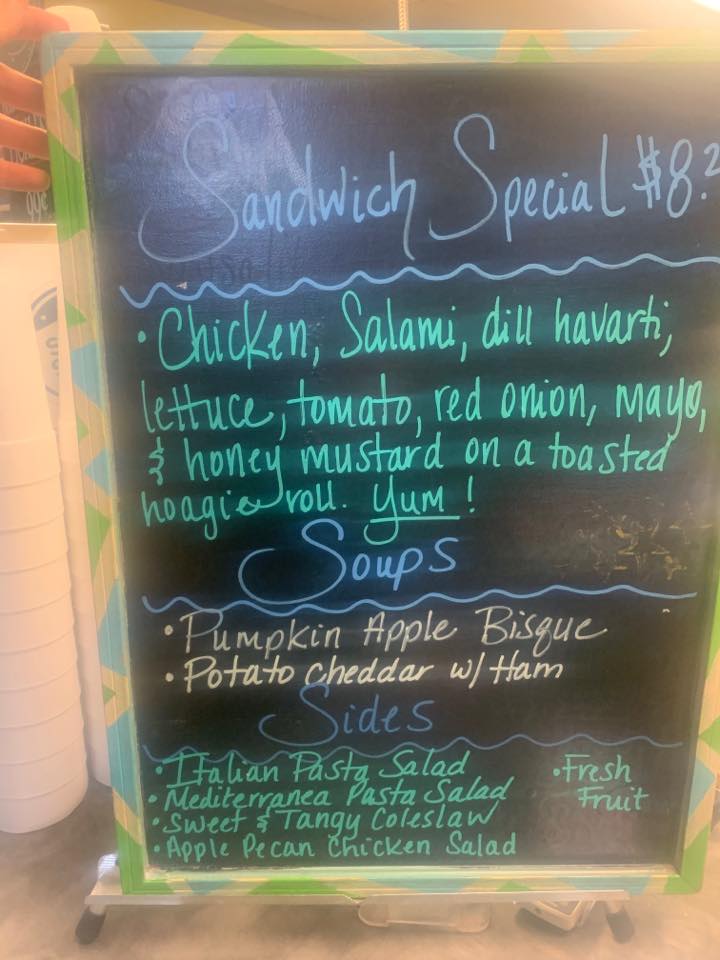 Sandwich Special $8.
• Chicken, Salami, dill havarti,
lettuce, tomato, red onion, mayo,
& honey mustard on a toasted
hoagie roll. Yum!
Soups
• Pumpkin Apple Bisque
• Potato Cheddar w/ Ham
Sides
• Italian Pasta Salad
• Mediterranea Pasta Salad
• Sweet & Tangy Coleslaw
• Apple Pecan Chicken Salad
• Fresh
Fruit